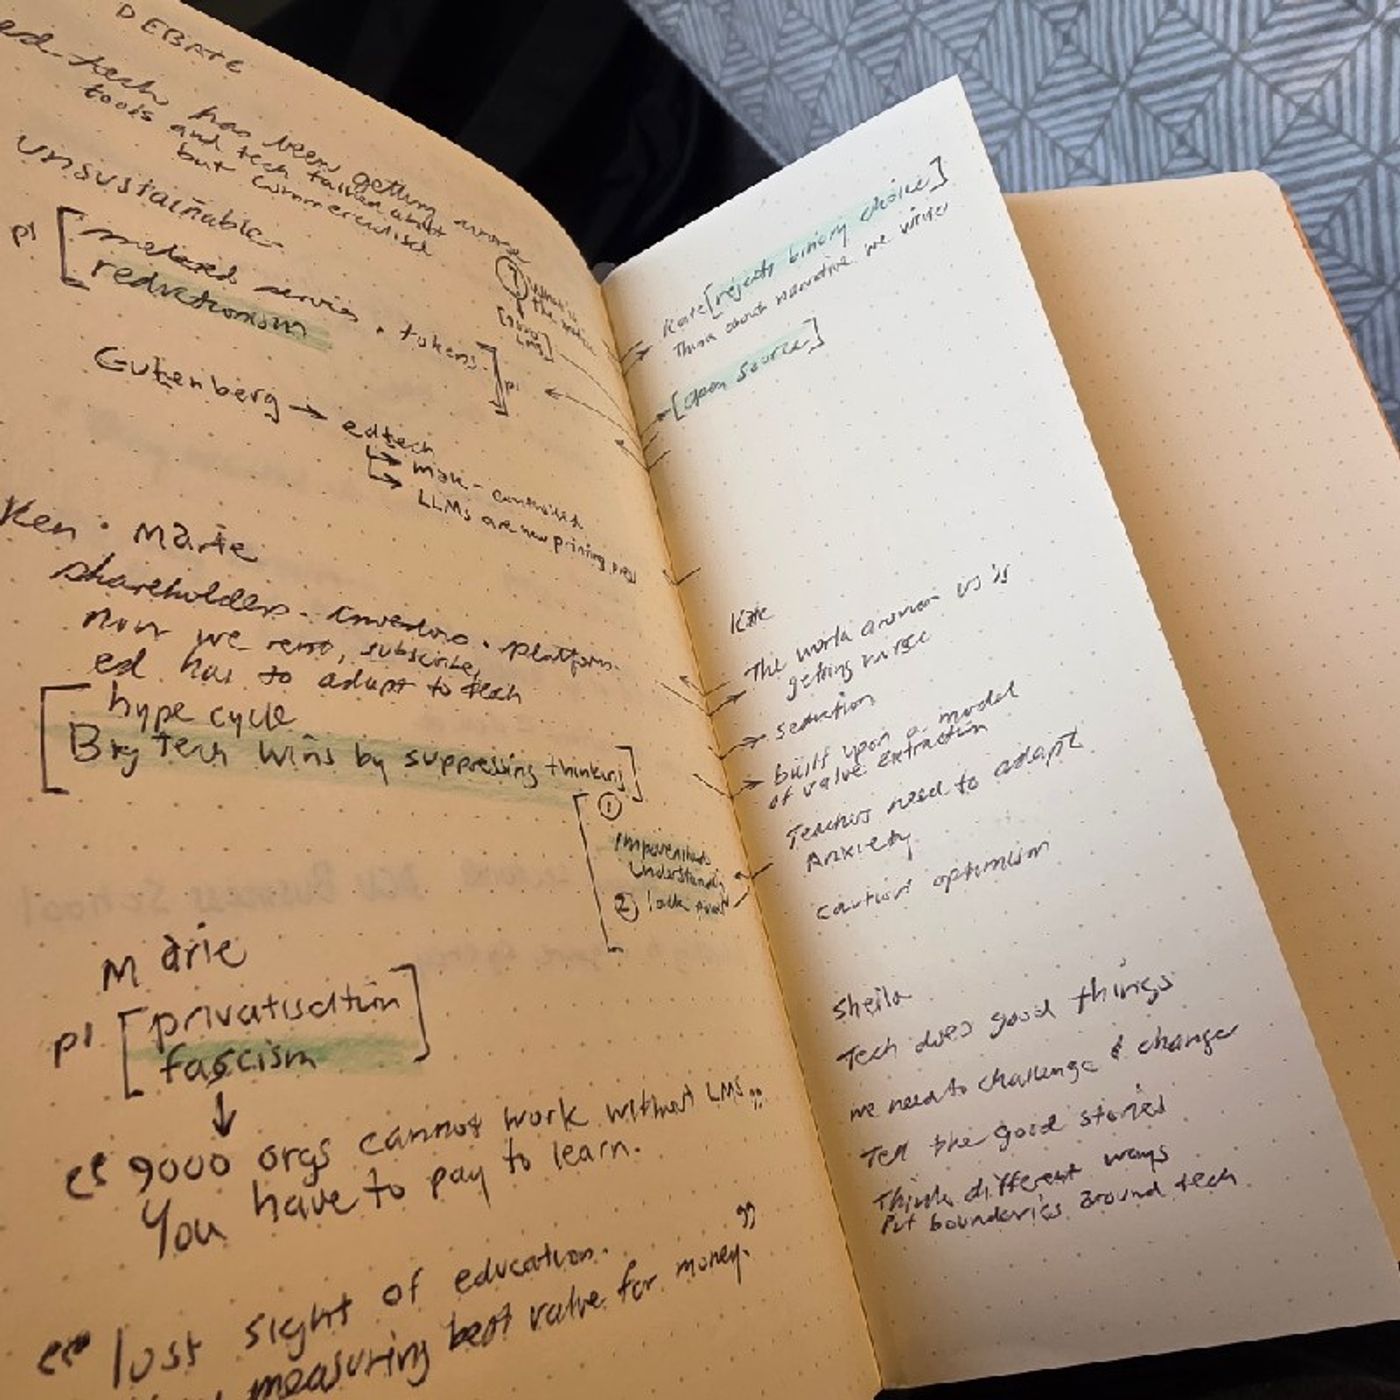 DEBATE
ed-tech has been getting
tools and tech talked about
but commercialised
unsustainable
p1 [metered service. tokens.
reductionism] p1
Gutenberg → edtech
↳ man-controlled
↳ LLMs are new printing press
Ken · Marie
shareholders. investors. platform.
now we rent, subscribe,
ed has to adapt to tech
[hype cycle
Big Tech wins by suppressing thinking]
[①
impoverished
understanding
② lack
Marie
p1 [privatisation
fascism]
↓
“ 9000 orgs cannot work without LMS ”
You have to pay to learn.
“ lost sight of education.
measuring best value for money. ”
Kate [rejects binary choice]
Think about narrative we
[open source]
Kate
The world around us is
getting worse
seduction
built upon a model
of value extraction
Teachers need to adapt
Anxiety
caution optimism
Sheila
Tech does good things
we need to challenge & change
Tell the good stories
Think different ways
Put boundaries around tech